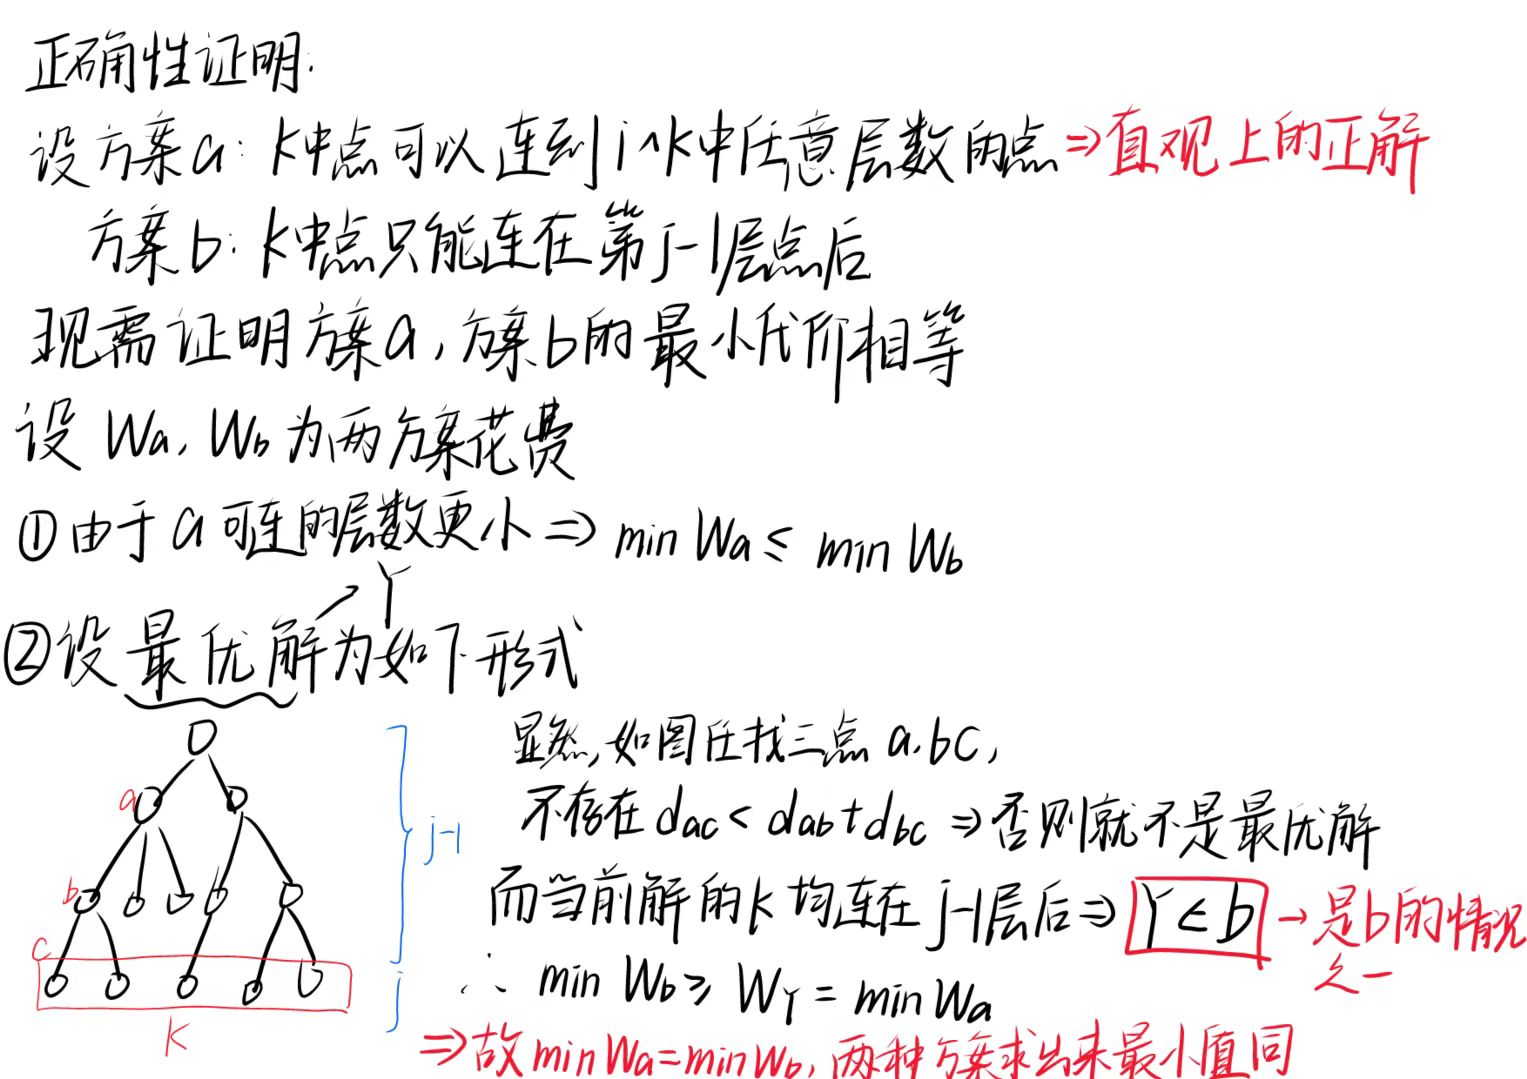 正确性证明:
设方案a: k中点可以连到i^k中任意层数的点⇒直观上的正解
方案b: k中点只能连在第j-1层点后
现需证明方案a,方案b的最小代价相等
设 Wa, Wb为两方案花费
①由于a可连的层数更小⇒ min Wa ≤ min Wb
Y
②设最优解为如下形式
显然,如图任找三点 a.bc,
不存在 dac < dab+dbc ⇒否则就不是最优解
而当前解的k均连在 j-1层后⇒ Y∈b → 是b的情况之一
∴ min Wb ≥ WY = min Wa
⇒故min Wa=min Wb, 两种方案求出来最小值同
a
b
c
k
j-1
j